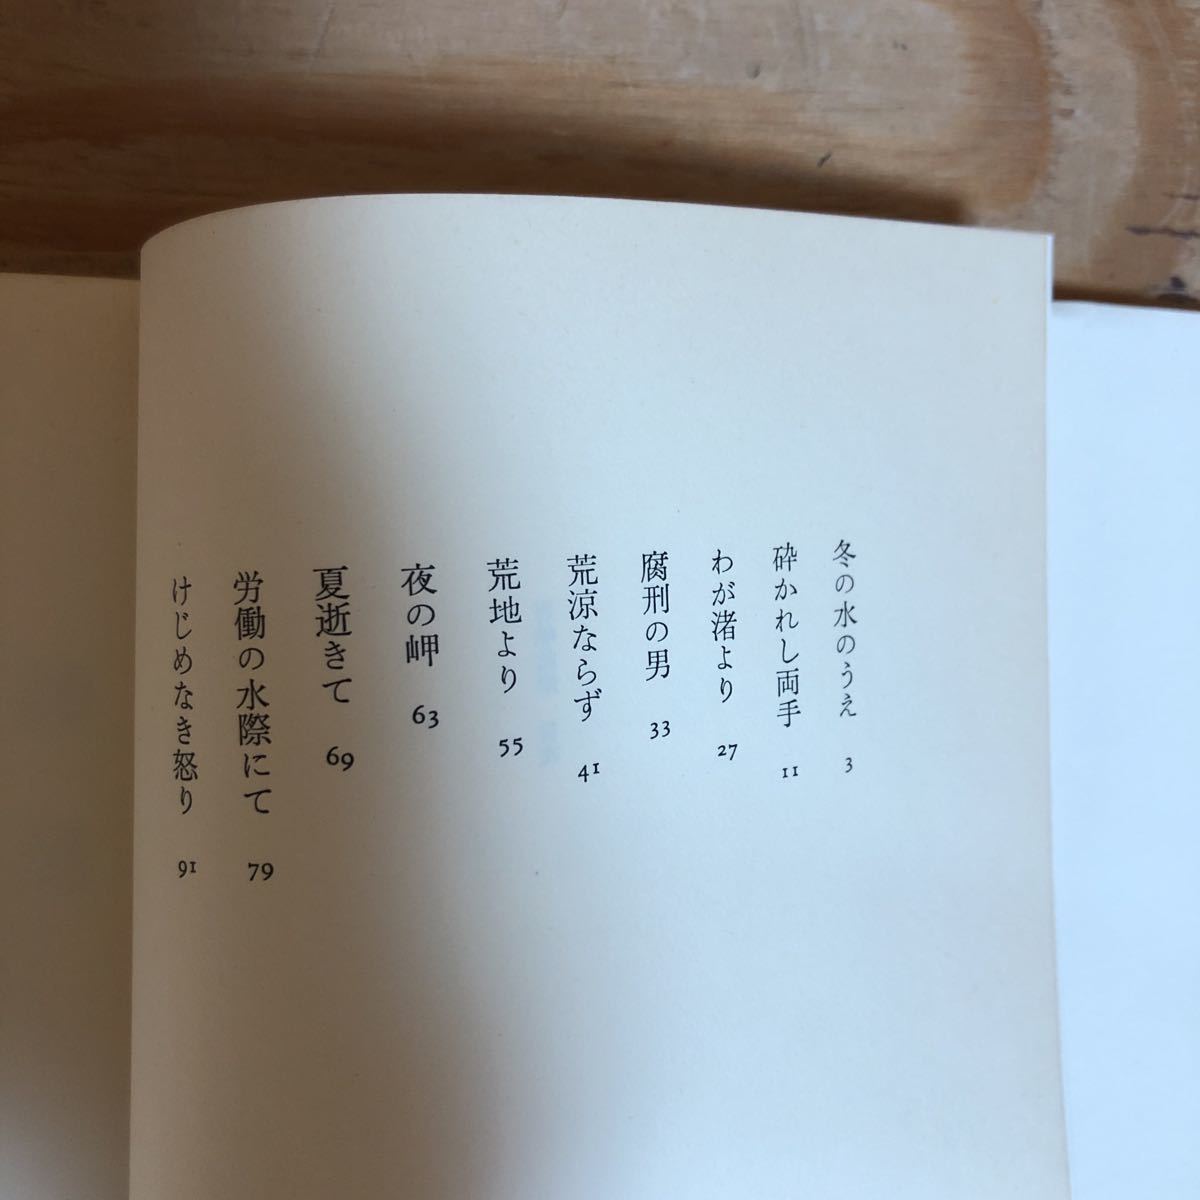 冬の水のうえ 3
砕かれし両手 11
わが渚より 27
腐刑の男 33
荒涼ならず 41
荒地より 55
夜の岬 63
夏逝きて 69
労働の水際にて 79
けじめなき怒り 91